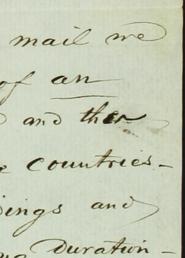 mail we
of an
and then
countries -
dings and
Duration -